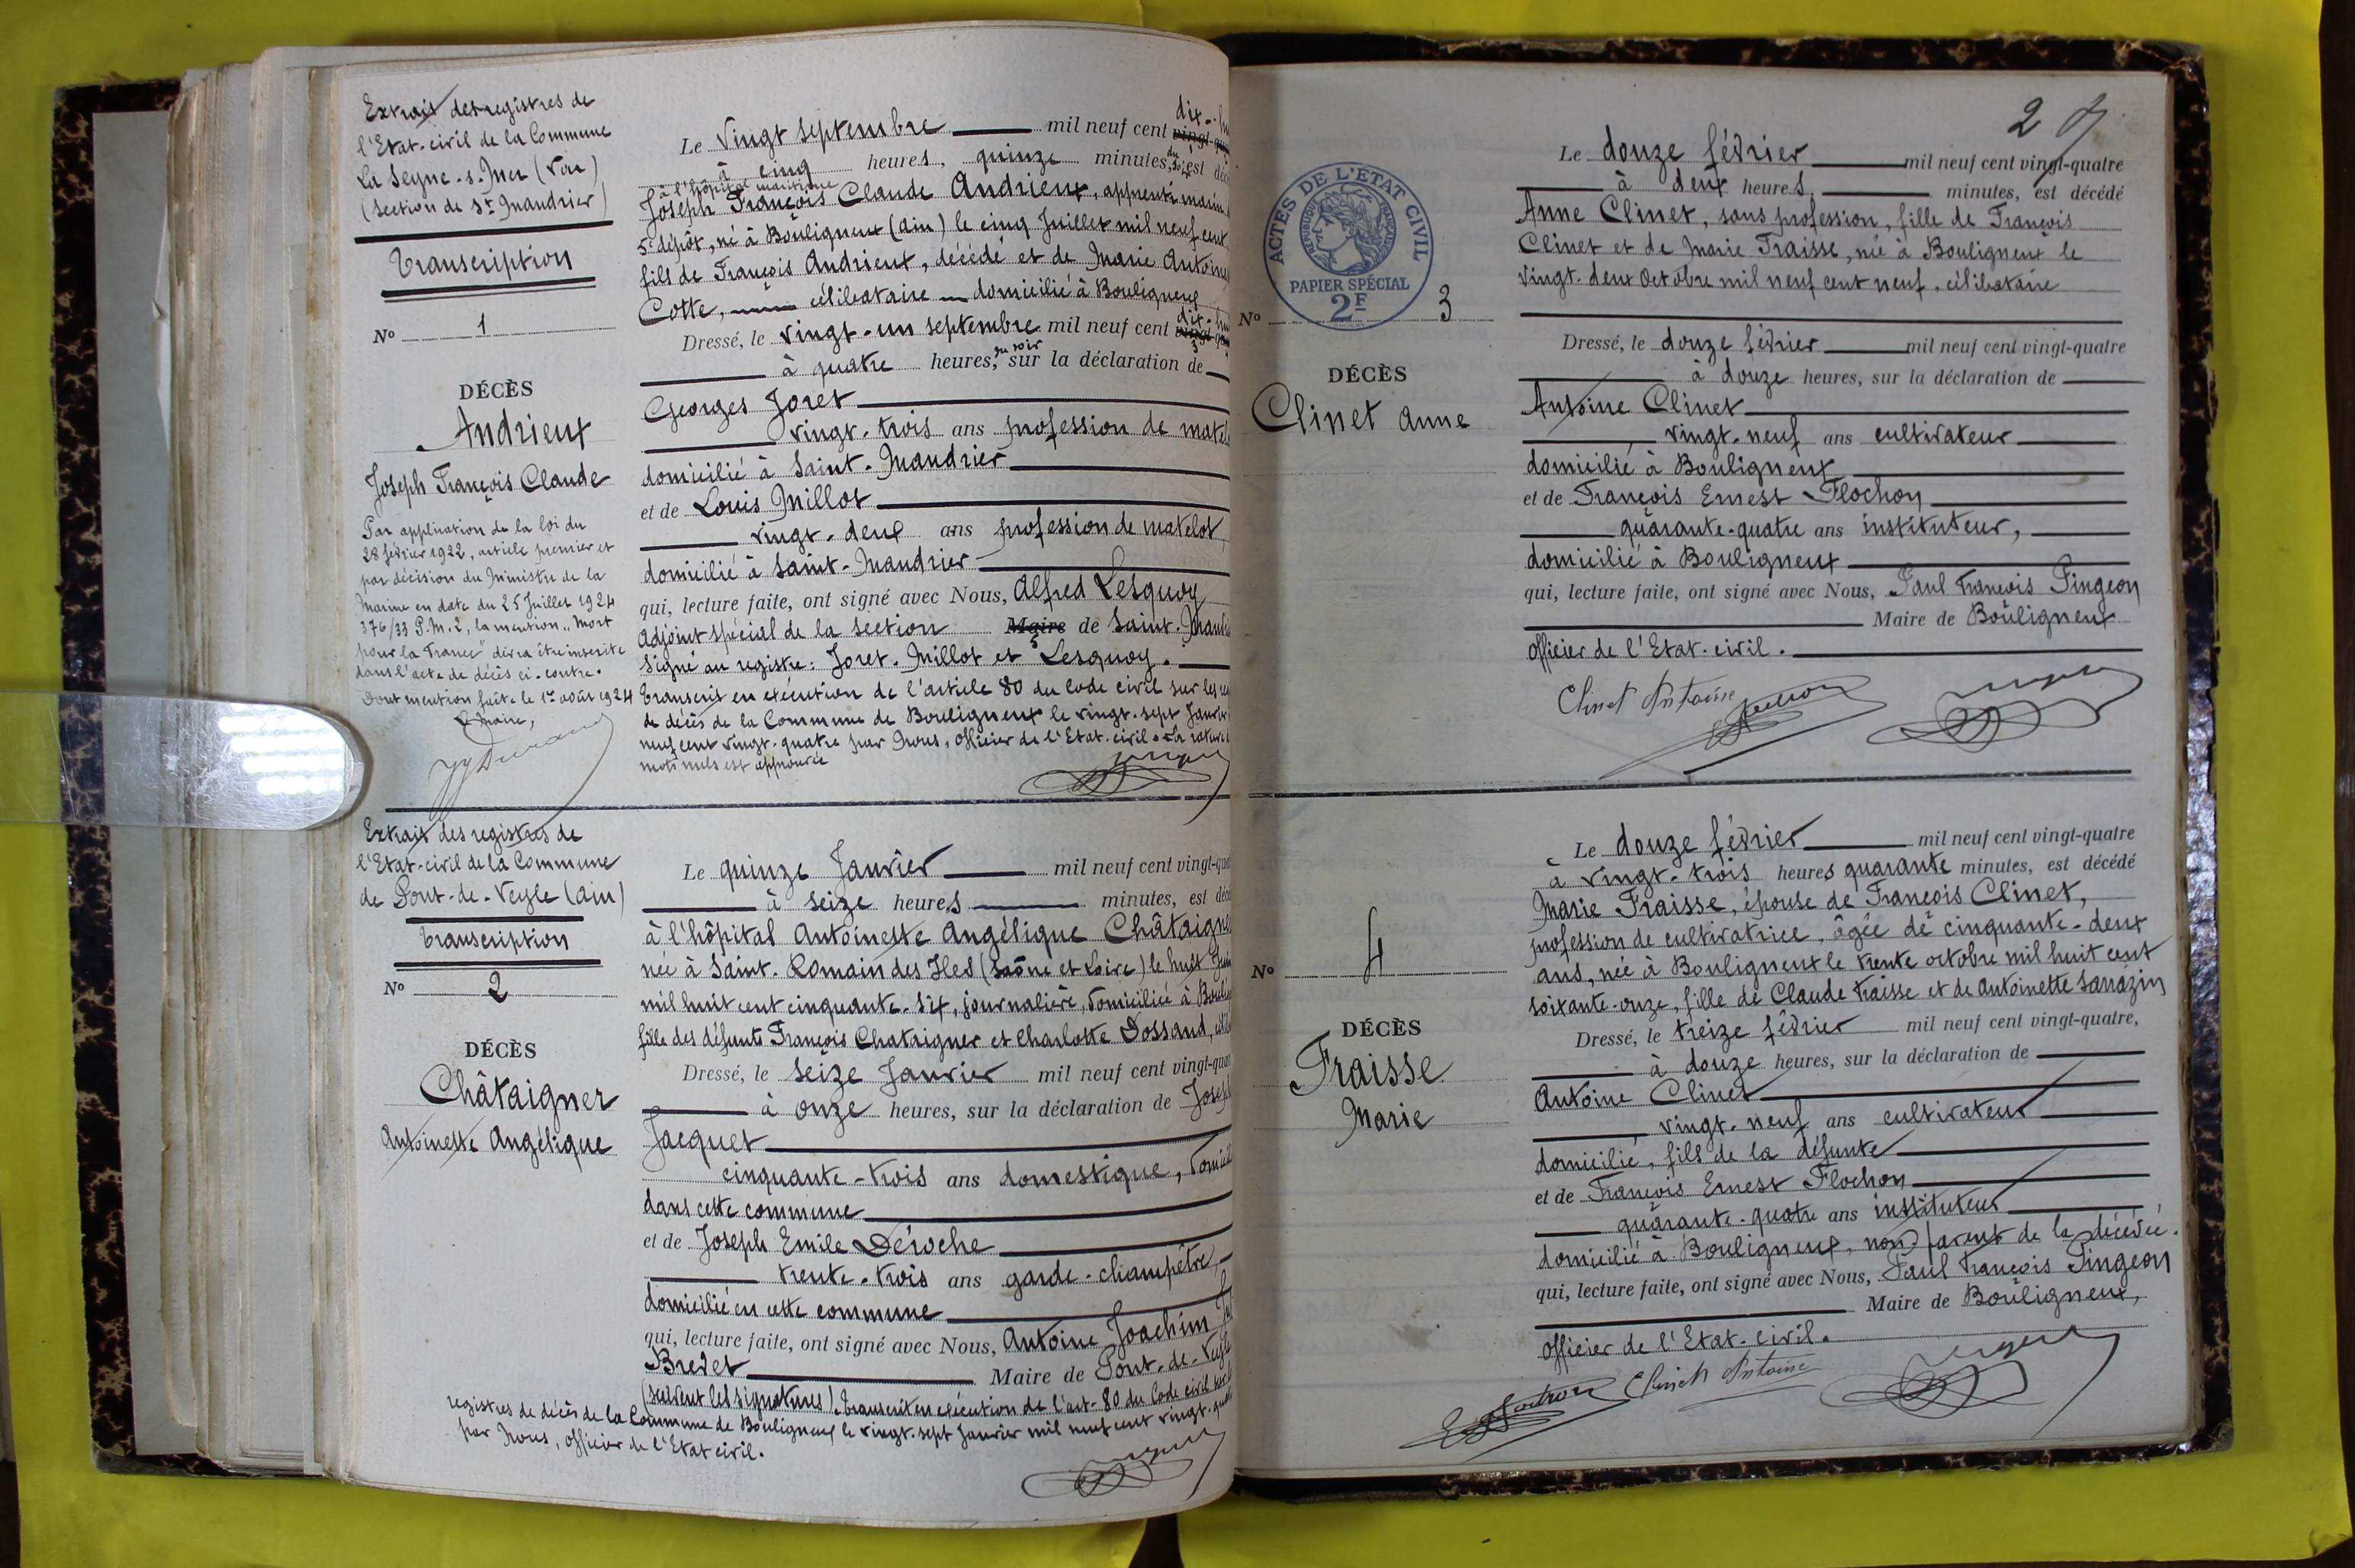 Extrait des registres de
l'Etat-civil de la Commune
La Seyne-s-Mer (Var)
(Section de St Mandrier)
Transcription
No 1
DÉCÈS
Andrieux
Joseph François Claude
Par application de la loi du
28 février 1922, article premier et
par décision du Ministre de la
Marine en date du 25 Juillet 1924
376/33 P.M.2, la mention "Mort
pour la France" devra être inscrite
dans l'acte de décès ci-contre.
Dont mention faite le 1er août 1924
Le Maire,
Le vingt septembre mil neuf cent dix-
à cinq heures, quinze minutes, du soir, est
à l'hôpital maritime
Joseph François Claude Andrieux, apprenti marin
5e dépôt, né à Bouligneux (Ain) le cinq Juillet mil neuf cent
fils de François Andrieux, décédé et de Marie Antoine
Cotte, célibataire domicilié à Bouligneux
Dressé, le vingt-un septembre mil neuf cent dix-
à quatre heures, du soir sur la déclaration de
Georges Joret
vingt-trois ans profession de matel
domicilié à Saint-Mandrier
et de Louis Millot
vingt-deux ans profession de matelot
domicilié à Saint-Mandrier
qui, lecture faite, ont signé avec Nous, Alfred Lesquoy
adjoint spécial de la section Maire de Saint-Mand
Signé au registre: Joret-Millot et Lesquoy.
Transcrit en exécution de l'article 80 du Code civil sur les
de décès de la Commune de Bouligneux le vingt-sept Janvier
neuf cent vingt-quatre par Nous, Officier de l'Etat-civil. La rature
mots nuls est approuvée
Extrait des registres de
l'Etat-civil de la Commune
de Pont-de-Veyle (Ain)
Transcription
No 2
DÉCÈS
Châtaigner
Antoinette Angélique
Le quinze Janvier mil neuf cent vingt-qua
à seize heures minutes, est déc
à l'hôpital Antoinette Angélique Châtaigne
née à Saint-Romain des Iles (Saône et Loire) le huit
mil huit cent cinquante-six, journalière, domiciliée à Bouli
fille des défunts François Chataigner et Charlotte Dossand,
Dressé, le seize Janvier mil neuf cent vingt-qua
à onze heures, sur la déclaration de Joseph
Jacquet
cinquante-trois ans domestique, domici
dans cette commune
et de Joseph Emile Déroche
trente-trois ans garde-champêtre,
domicilié en cette commune
qui, lecture faite, ont signé avec Nous, Antoine Joachim
Bredet Maire de Pont-de-Veyle
(suivent les signatures). Transcrit en exécution de l'art-80 du Code civil sur les
registres de décès de la Commune de Bouligneux le vingt-sept Janvier mil neuf cent vingt-qua
par Nous, Officier de l'Etat civil.
2
ACTES DE L'ÉTAT CIVIL
RÉPUBLIQUE FRANÇAISE
PAPIER SPÉCIAL
2F
No 3
DÉCÈS
Clinet Anne
Le douze février mil neuf cent vingt-quatre
à deux heures, minutes, est décédé
Anne Clinet, sans profession, fille de François
Clinet et de Marie Fraisse, née à Bouligneux le
vingt-deux Octobre mil neuf cent neuf, célibataire
Dressé, le douze février mil neuf cent vingt-quatre
à douze heures, sur la déclaration de
Antoine Clinet
, vingt-neuf ans cultivateur
domicilié à Bouligneux
et de François Ernest Flochon
quarante-quatre ans instituteur,
domicilié à Bouligneux
qui, lecture faite, ont signé avec Nous, Paul François Pingeon
Maire de Bouligneux
Officier de l'Etat-civil.
Clinet Antoine
No 4
DÉCÈS
Fraisse
Marie
Le douze février mil neuf cent vingt-quatre
à vingt-trois heures quarante minutes, est décédé
Marie Fraisse, épouse de François Clinet,
profession de cultivatrice, âgée de cinquante-deux
ans, née à Bouligneux le trente octobre mil huit cent
soixante-onze, fille de Claude Fraisse et de Antoinette Sarrazin
Dressé, le treize février mil neuf cent vingt-quatre,
à douze heures, sur la déclaration de
Antoine Clinet
vingt-neuf ans cultivateur
domicilié, fils de la défunte
et de François Ernest Flochon
quarante-quatre ans instituteur
domicilié à Bouligneux, non parent de la décédée.
qui, lecture faite, ont signé avec Nous, Paul François Pingeon
Maire de Bouligneux,
Officier de l'Etat-civil.
Clinet Antoine